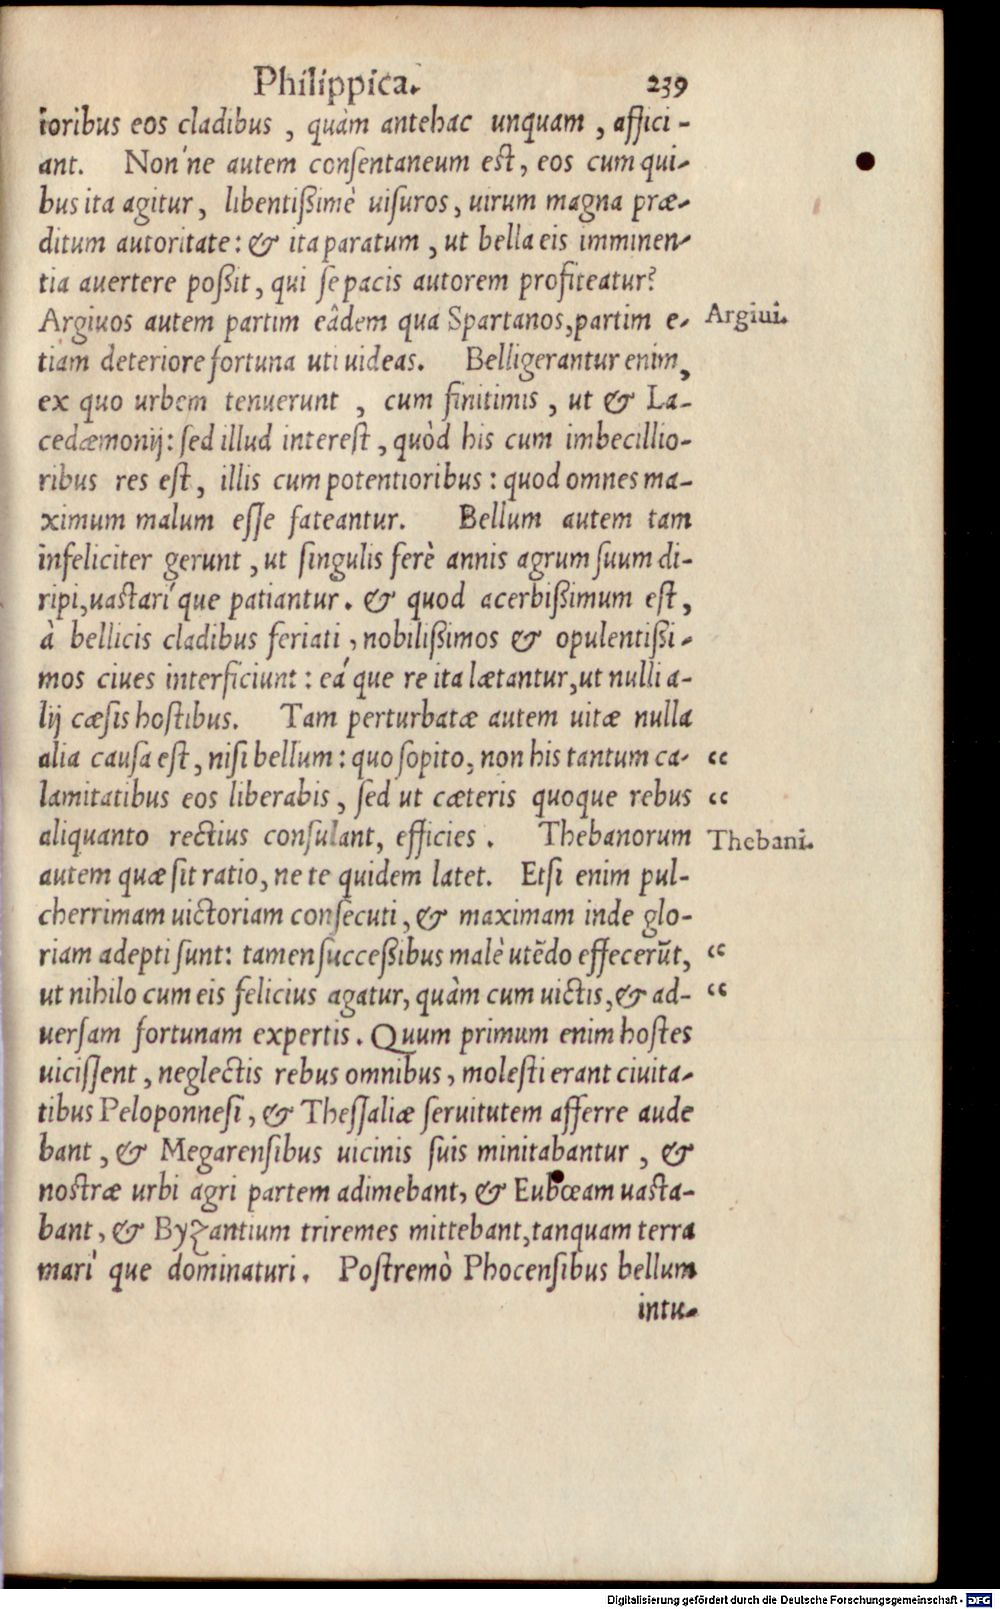 Philippica. 239
ioribus eos cladibus, quàm antehac unquam, affici-
ant. Non'ne autem conſentaneum eſt, eos cum qui-
bus ita agitur, libentiſſimè uiſuros, uirum magna præ-
ditum autoritate: & ita paratum, ut bella eis imminen-
tia auertere poſſit, qui ſe pacis autorem profiteatur?
Argiuos autem partim eâdem qua Spartanos, partim e- Argiui.
tiam deteriore fortuna uti uideas. Belligerantur enim,
ex quo urbem tenuerunt, cum finitimis, ut & La-
cedæmonij: ſed illud intereſt, quòd his cum imbecillio-
ribus res eſt, illis cum potentioribus: quod omnes ma-
ximum malum eſſe fateantur. Bellum autem tam
infeliciter gerunt, ut ſingulis ferè annis agrum ſuum di-
ripi, uaſtari'que patiantur. & quod acerbiſſimum eſt,
à bellicis cladibus feriati, nobiliſſimos & opulentiſſi-
mos ciues interficiunt: eá que re ita lætantur, ut nulli a-
lij cæſis hoſtibus. Tam perturbatæ autem uitæ nulla
alia cauſa eſt, niſi bellum: quo ſopito, non his tantum ca- “
lamitatibus eos liberabis, ſed ut cæteris quoque rebus “
aliquanto rectius conſulant, efficies. Thebanorum Thebani.
autem quæ ſit ratio, ne te quidem latet. Etſi enim pul-
cherrimam uictoriam conſecuti, & maximam inde glo-
riam adepti ſunt: tamen ſucceſſibus malè utẽdo effecerũt, “
ut nihilo cum eis felicius agatur, quàm cum uictis, & ad- “
uerſam fortunam expertis. Quum primum enim hoſtes
uiciſſent, neglectis rebus omnibus, moleſti erant ciuita-
tibus Peloponneſi, & Theſſaliæ ſeruitutem afferre aude
bant, & Megarenſibus uicinis ſuis minitabantur, &
noſtræ urbi agri partem adimebant, & Eubœam uaſta-
bant, & Byzantium triremes mittebant, tanquam terra
mari'que dominaturi. Poſtremò Phocenſibus bellum
intu-
Digitalisierung gefördert durch die Deutsche Forschungsgemeinschaft - DFG